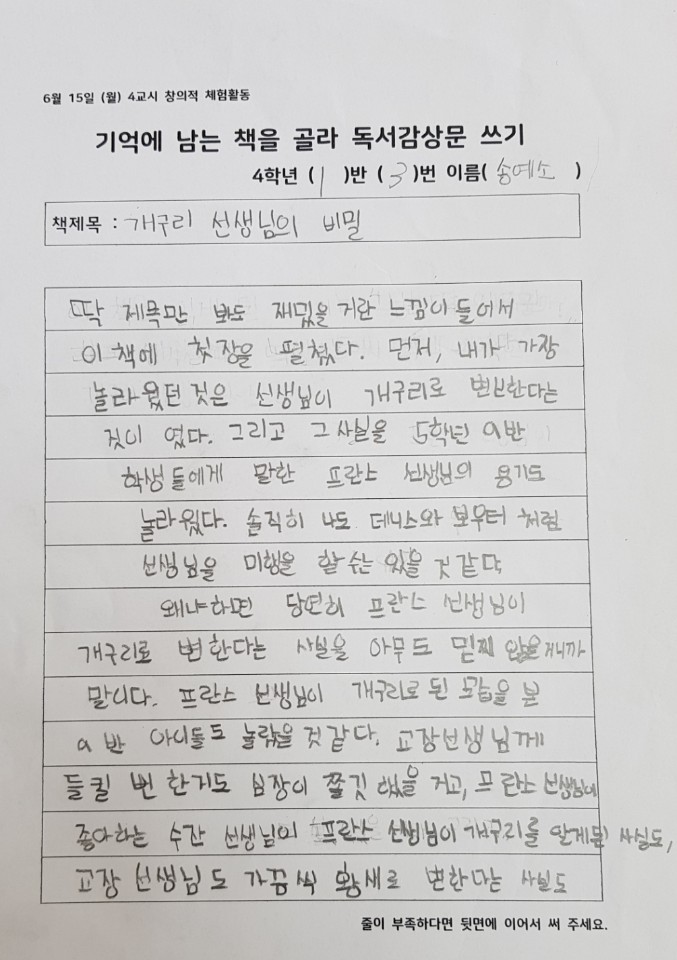 6월 15일 (월) 4교시 창의적 체험활동
기억에 남는 책을 골라 독서감상문 쓰기
4학년 ( 1 )반 ( 3 )번 이름( 송예소 )
책제목 : 개구리 선생님의 비밀
딱 제목만 봐도 재밌을 거란 느낌이 들어서
이 책에 첫 장을 펼쳤다. 먼저, 내가 가장
놀라웠던 것은 선생님이 개구리로 변신한다는
것이 였다. 그리고 그 사실을 5학년 a반
학생들에게 말한 프란스 선생님의 용기도
놀라웠다. 솔직히 나도 데니스와 보우터 처럼
선생님을 미행을 할 수는 있을 것 같다.
왜냐하면 당연히 프란스 선생님이
개구리로 변한다는 사실을 아무도 믿찌 않을거니까
말이다. 프란스 선생님이 개구리로 된 모습을 본
a 반 아이들도 놀랐을 것 같다. 교장선생님께
들킬 번 한기도 심장이 쫄깃 했을 거고, 프란스 선생님이
좋아하는 수간 선생님이 프란스 선생님이 개구리를 알게된 사실도,
교장 선생님도 가끔씩 황새로 변한다는 사실도
줄이 부족하다면 뒷면에 이어서 써 주세요.